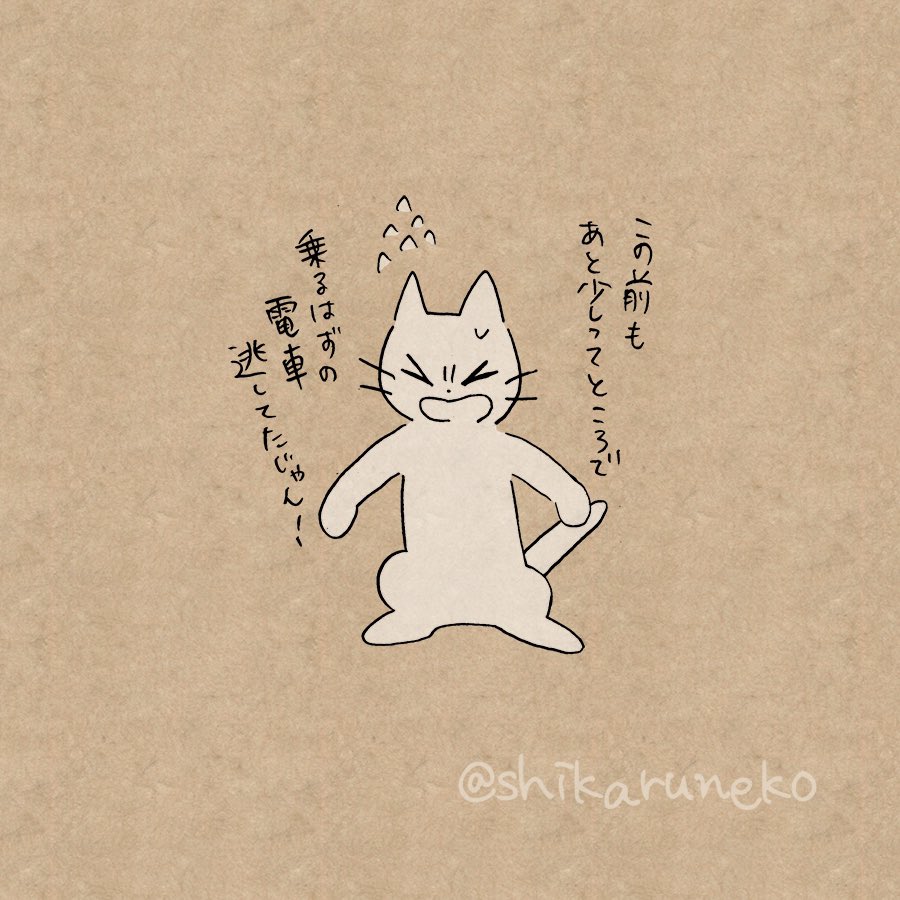 この前も
あと少しってところで
乗るはずの
電車
逃してたじゃん!
@shikaruneko